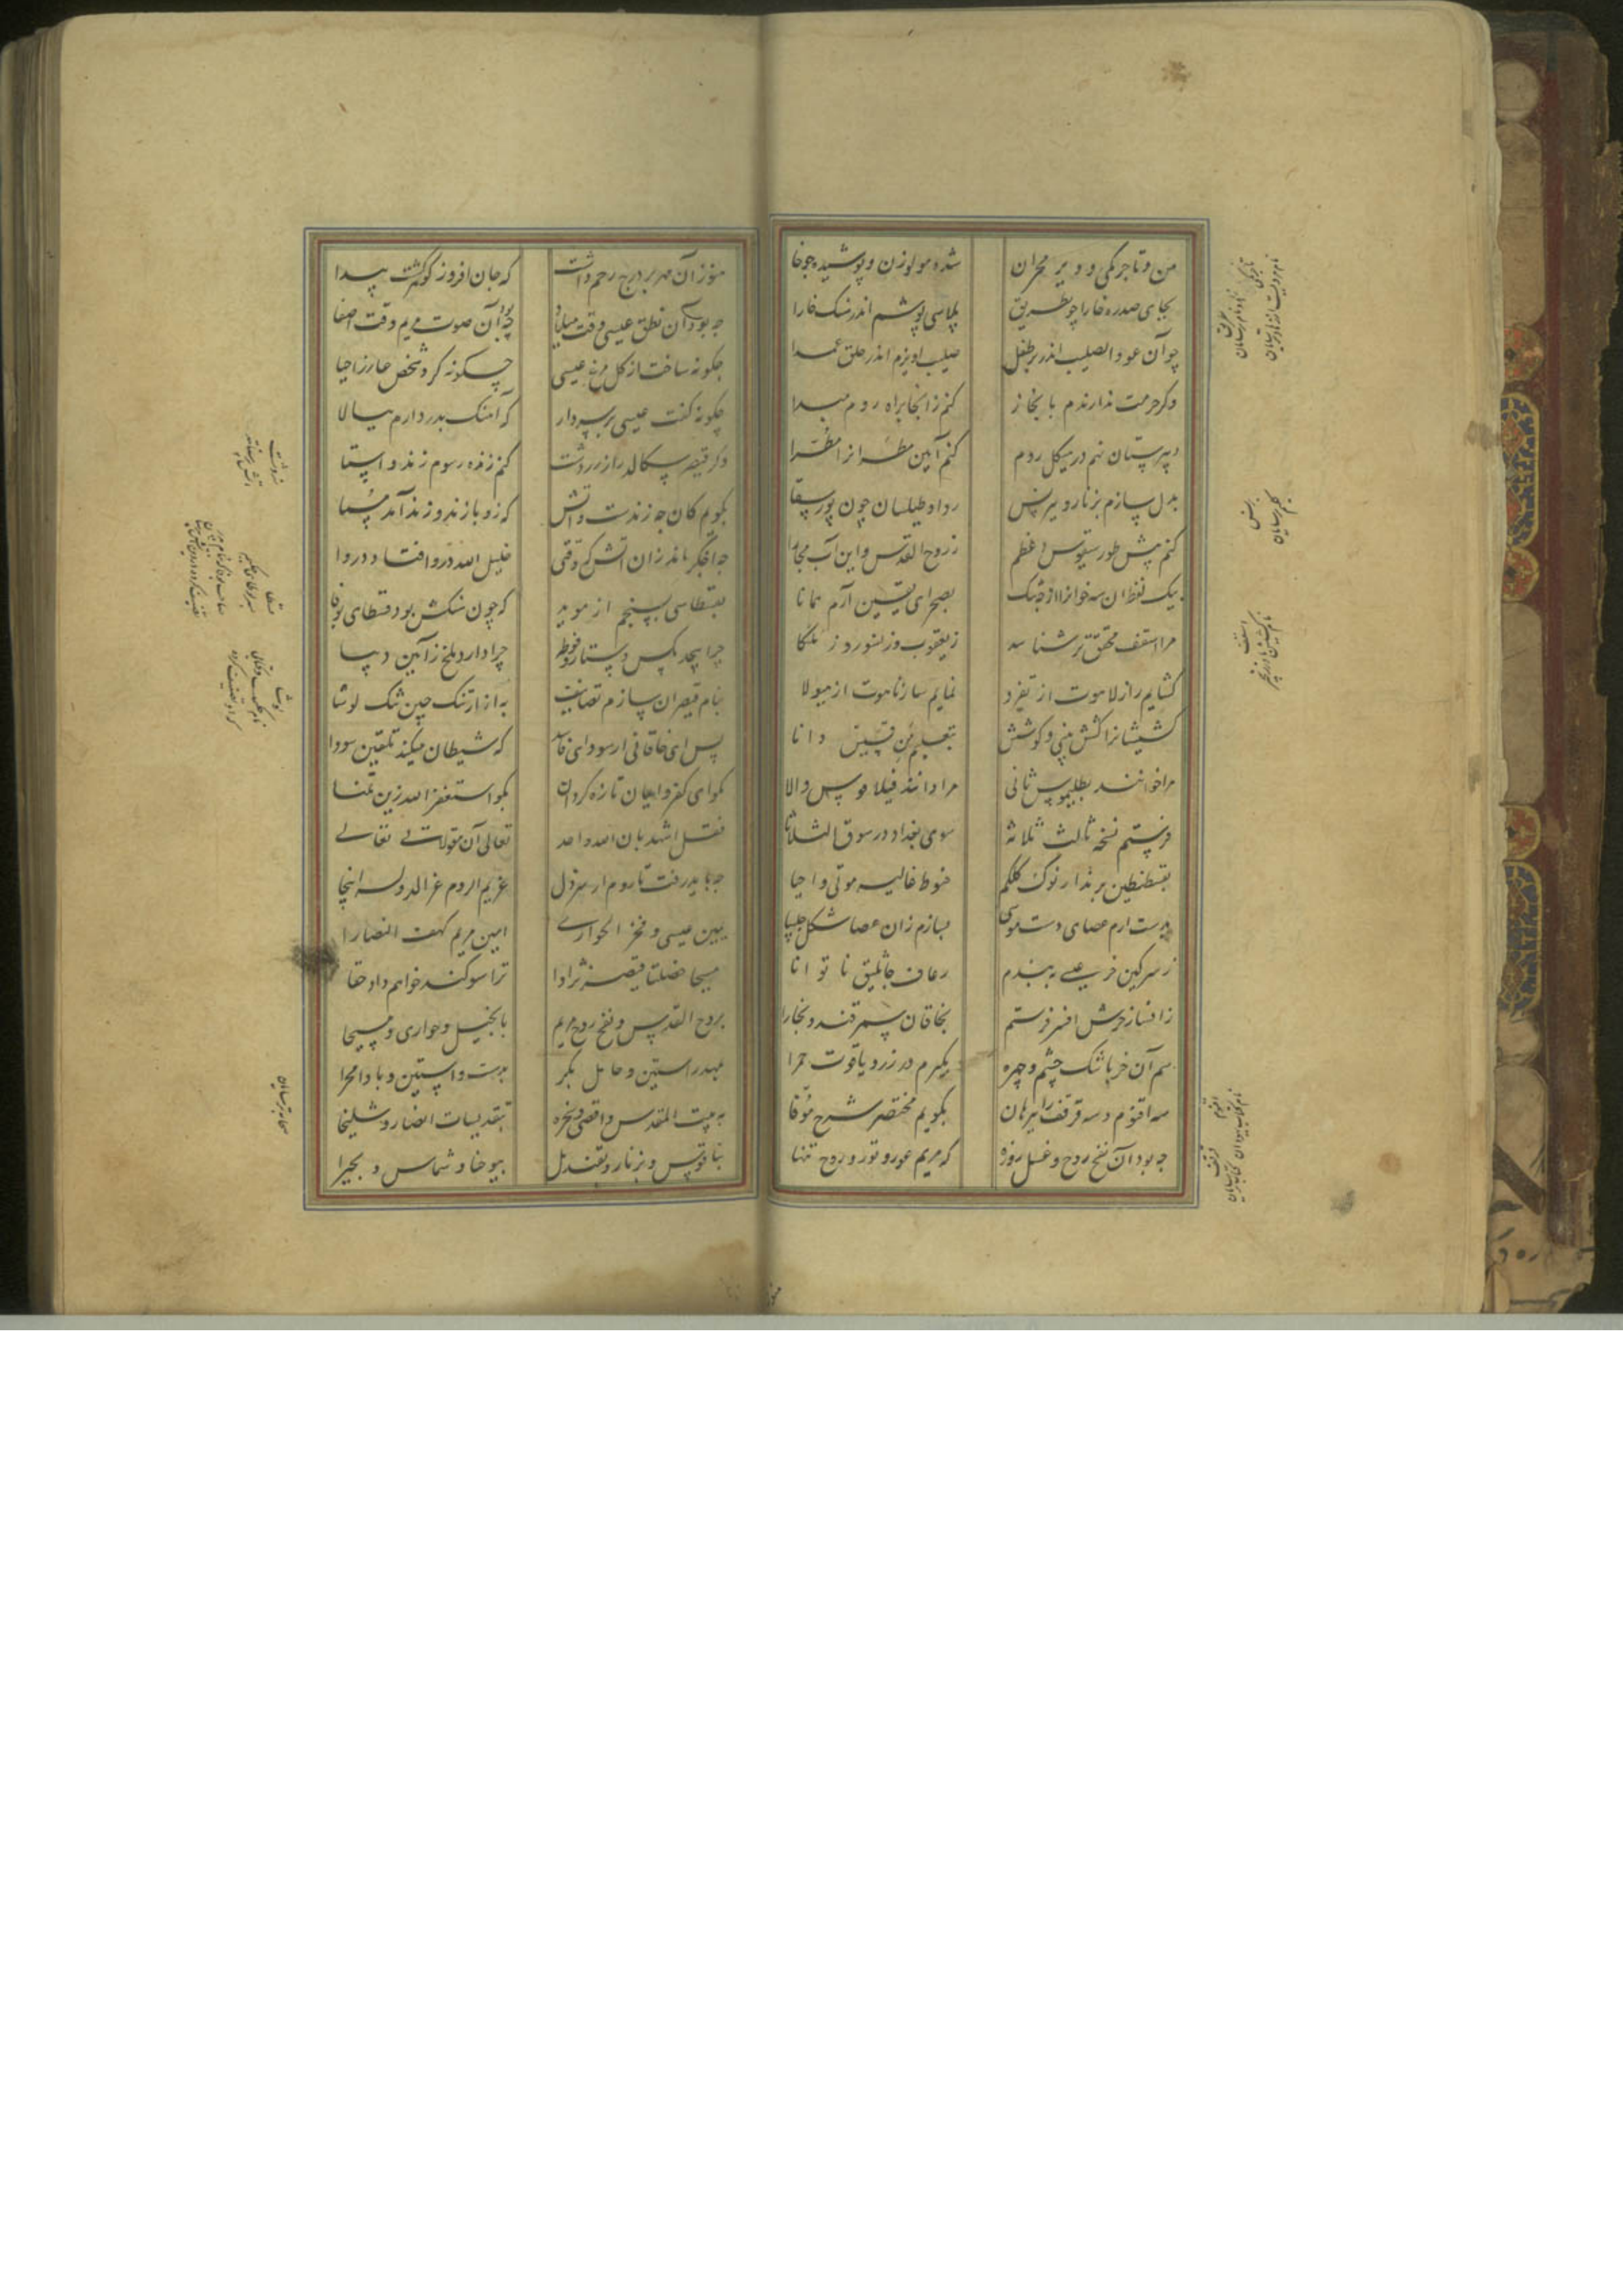 من و تاجرمکی و دیر مخران شده مولوزن و پوشیده چوخا
بجای صدره خارا چو بطریق پلاسی پوشم اندر سنک خارا
چو آن عود الصلیب اندر بر طفل صلیب اویزم اندر حلق عمدا
وکر حرمت ندارندم بابخاز کنم زانجا براه روم مبدا
دبیرستان نهم در هیکل روم کنم آیین مطران را مطرا
بدل سازم بزنار و ببرنس ردا و طیلسان چون پور سقا
کنم پیش طورسیقوس اعظم ز روح القدس و ابن و آب مجارا
بیک لفظ آن سه خوانرا از چه شک بصحرای یقین آرم همانا
مرا اسقف محقق تر شناسد ز یعقوب و ز نسطور و ز ملکا
کشایم راز لاهوت از تفرد نمایم ساز ناسوت از هیولا
کشیشانرا کشش بینی و کوشش بتعلیم من قسیس دانا
مرا خوانند بطلیموس ثانی مرا دانند فیلاقوس والا
فرستم نسخه ثالث ثلاثه سوی بغداد در سوق الثلاثا
بقسطنطین برند از نوک کلکم حنوط غالیه موتی و احیا
بدست ارم عصای دست موسی بسازم زان عصا شکل چلیپا
ز سرکین خر عیسی ببندم رعاف جاثلیق نا توانا
ز افسار خرش افسر فرستم بخاقان سمرقند و بخارا
سم آن خر باشک چشم و چهره بکیرم در زر و یاقوت حمرا
سه اقنوم و سه قرقف را ببرهان بکویم مختصر شرح موفا
چه بود آن نفخ روح و غسل روزه که مریم عور و تور و روح تنها
هنوز آن مهر بر درج رحم داشت که جان افروز کوهر کشت پیدا
چه بود آن نطق عیسی وقت میلاد چه بود آن صوت مریم وقت اصغا
چکونه ساخت از کل مرغ عیسی چکونه کرد شخص عازر احیا
چکونه کفت عیسی بر سر دار که آهنک پدر دارم ببالا
وکر قیصر سکالد راز زردشت کنم زنده رسوم زند و استا
بکویم کان چه زندست و اتش کزو پازند و زند آمد مسما
چه اخکر ماند زان اتش که وقتی خلیل الله درو افتاد دروا
بقسطاسی بسنجم از موبد که چون سنکش بود قسطای لوقا
چرا پیچد مکس دستار فوطه چرا دارد ملخ زآیین دیبا
بنام قیصران سازم تصانیف به از ارتنک چین و تنک لوشا
پس ای خاقانی از سودای فاسد که شیطان میکند تلقین سودا
مکو ای کفر و ایمان تازه کردان بکو استغفر الله زین تمنا
فقل اشهد بان الله واحد تعالی آن مقولاتی تعالی
چه باید رفت تا روم از سر ذل عزیم الروم عز الدوله اینجا
یمین عیسی و فخر الحواری امین مریم کهف النصارا
مسیحا خصلتا قیصر نژادا ترا سوکند خواهم داد حقا
بروح القدس و نفخ روح مریم بانجیل و حواری و مسیحا
بمهد راستین و حامل بکر بدست و استین و باد مجرا
به بیت المقدس و اقصی و صخره بتقدیسات انصار و شلیخا
بناقوس و بزنار و بقندیل بیوحنا و شماس و بحیرا